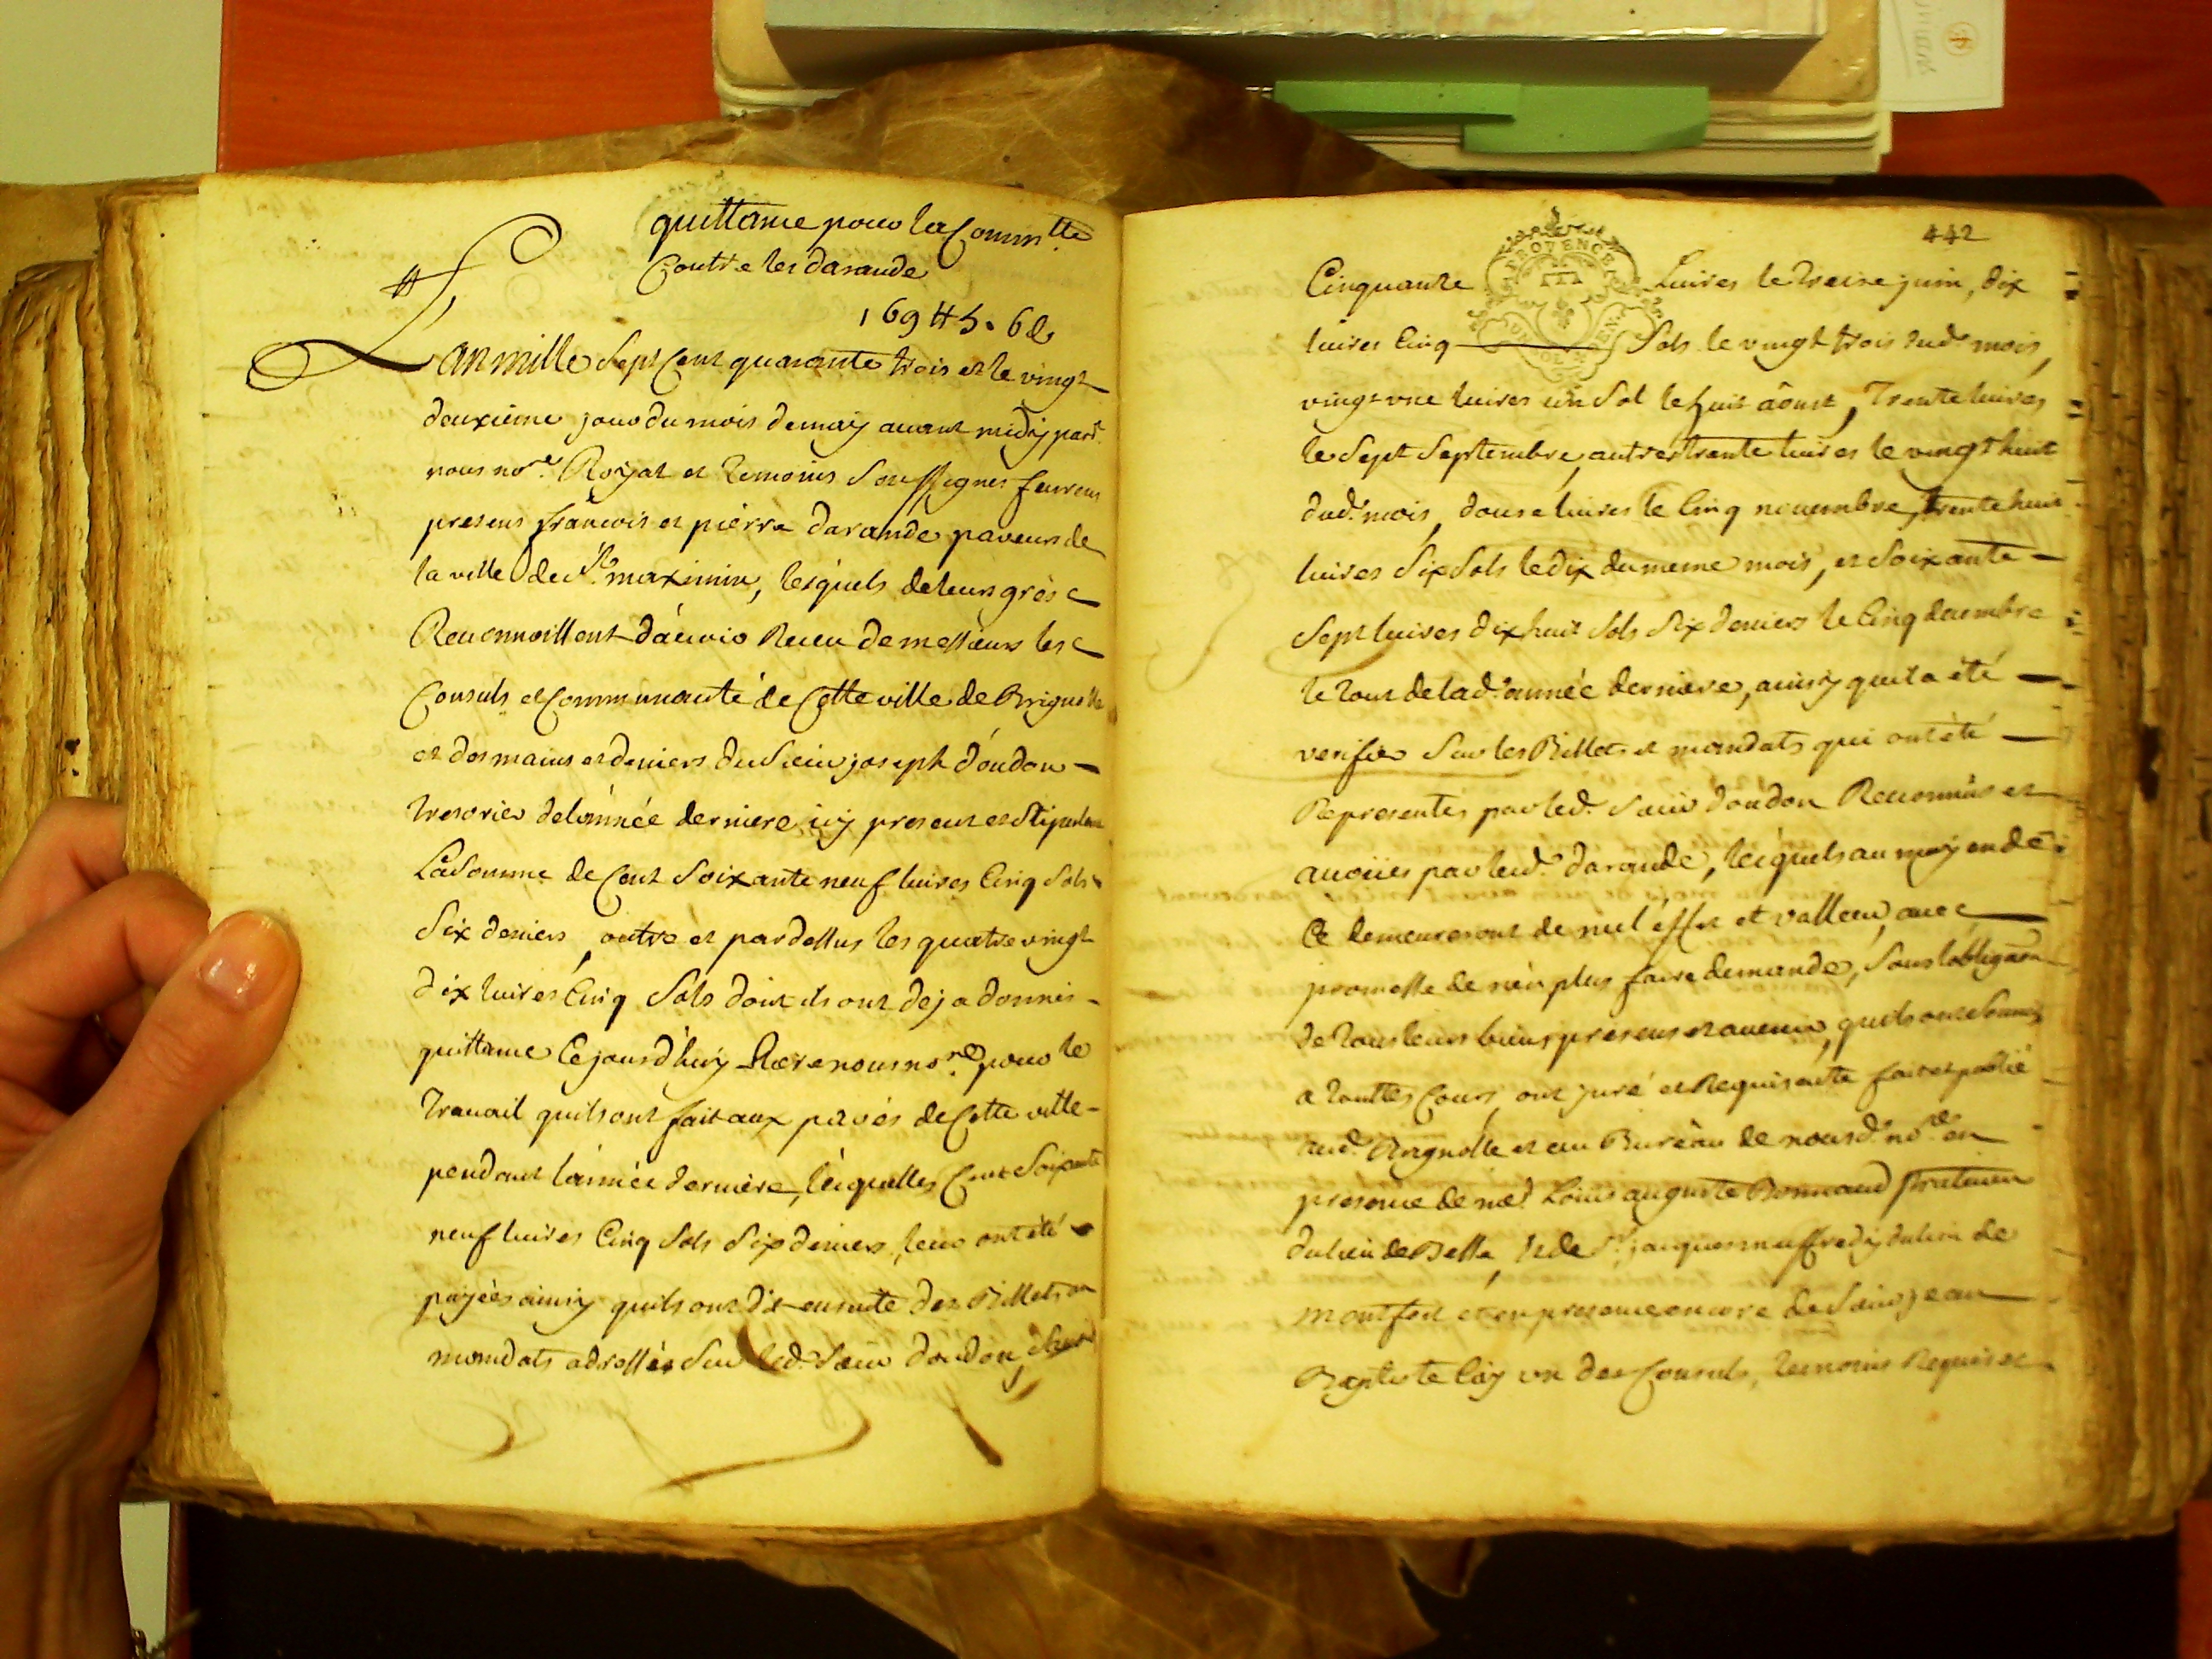 quittance pour la Comm.tte
Contre les darande
169 ₶ 5 s 6 d
Lan mille Sept Cent quarante trois et le vingt
deuxieme jour du mois de may avant midy pard.t
nous no.re Royal et temoins Soussignes feurent
presens françois et piérre darande paveurs de
la ville de S.t maximin, lesquels de leurs grés
Reconnoissent d'avoir Receu de messieurs les
Consuls et Communauté de Cette ville de Brignolle
et des mains et deniers du Sieur joseph d'oudon
tresorier de l'année derniere icy present et stipulant
La Somme de Cent Soixante neuf livres Cinq Sols
Six deniers, outre et pardessus les quatre vingt
dix livres Cinq Sols dont ils ont deja donnés
quittance Cejourd'huy Riere nous no.re pour le
travail quils ont fait aux pavés de Cette ville
pendant l'année derniere, lesquelles Cent Soixante
neuf livres Cinq Sols Six deniers leur ont été
payées ainsy quils ont dit ensuite des Billets ou
mandats adressés Sur led. Sieur doudon
442
Cinquante livres le treize juin, dix
livres Cinq Sols le vingt trois dud. mois,
vingt une livres un Sol le huit aoust, Trente livres
le Sept Septembre, autres trente livres le vingt huit
dud. mois, douse livres le Cinq novembre, trente huit
livres Six Sols le dix du meme mois, et Soixante
Sept livres dix huit Sols Six deniers le Cinq decembre
le tout de lad. année derniere, ainsy quil a été
verifié Sur les Billets et mandats qui ont été
Representés par led. Sieur doudon Reconnus et
avoüés par lesd. darande, lesquels au moyen de
Ce demeureront de nul effet et valleur, avec
promesse de n'en plus faire demande, Sous l'obliga.on
de tous leurs biens presens et avenir, quils ont Soumis
a touttes Cours, ont juré et Requis acte fait et publié
aud. Brignolle et au Bureau de nousd. no.re en
presence de me. Louis auguste Bonnaud praticien
du lieu de Besse, et de S.r jacques muffredy du lieu de
montfort et en presence encore de Sieur jean
Baptiste un des Consuls, temoins Requis et